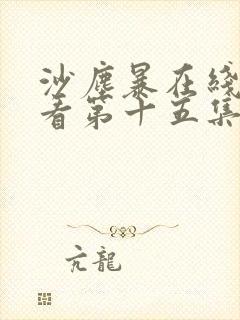 沙塵暴在綫
看第十五集
亢龍